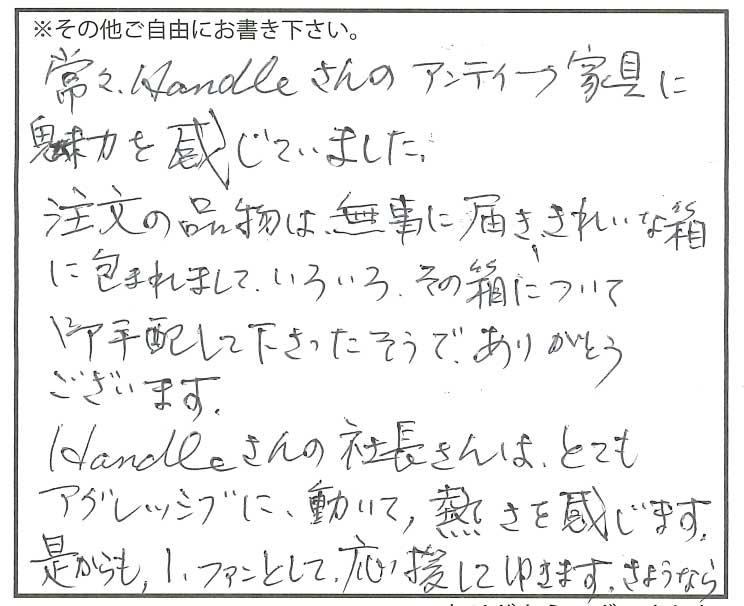 ※その他ご自由にお書き下さい。
常々、Handleさんのアンティーク家具に
魅力を感じていました。
注文の品物は、無事に届き、きれいな箱
に包まれまして、いろいろ、その箱について
御手配して下さったそうで、ありがとう
ございます。
Handleさんの社長さんは、とても
アグレッシブに、動いて、熱さを感じます。
是からも、1、ファンとして、応援してゆきます。さようなら